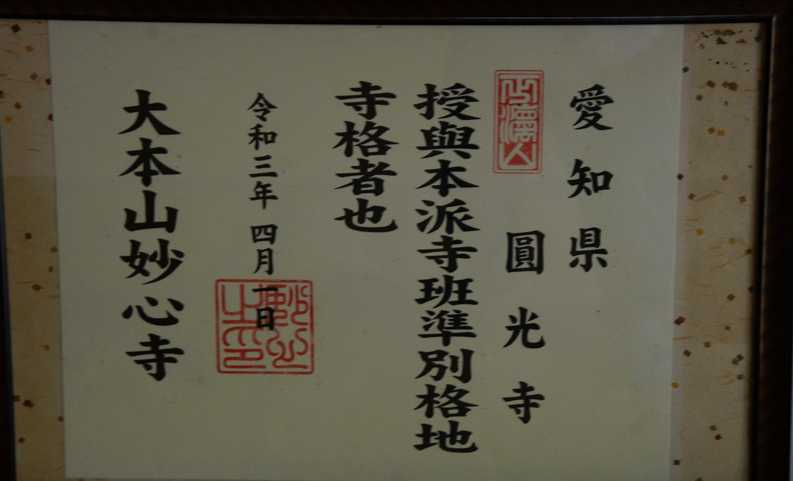 愛知県
圓光寺
授與本派寺班準別格地
寺格者也
令和三年四月一日
大本山妙心寺